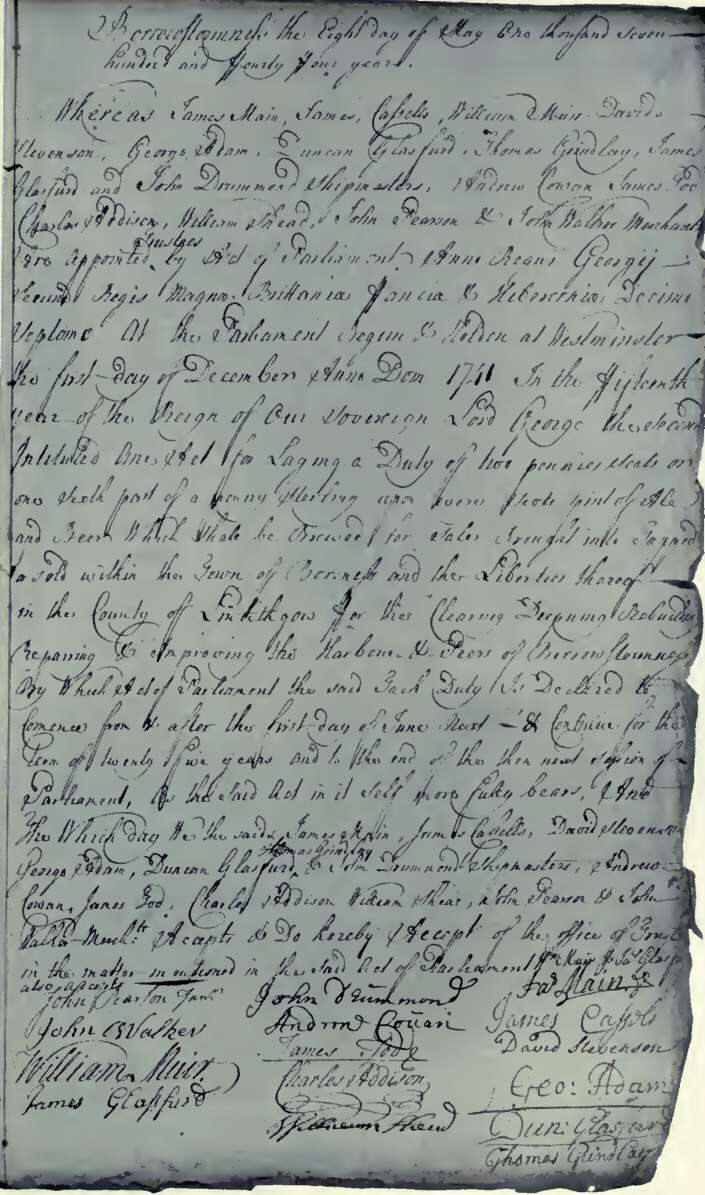 Borrowstounness the Eight day of May One thousand seven
hundred and fourty four years.
Whereas James Main, James Cassells, William Muir David
Stevenson, George Adam, Duncan Glasfurd, Thomas Grindlay, James
Glasfurd and John Drummond Shipmasters, Andrew Cowan James Tod
Charles Addison, William Shead, John Pearson & John Walker Merchants
Trustees
Are appointed by Act of Parliament Anno Regni Georgij
Secundi Regis Magna Brittania francia & Hibernia Decimo
Septimo At the Parliament begun & Holden at Westminster
the first day of December Anno Dom 1741 In the fifteenth
year of the Reign of Our Sovereign Lord George the Second
Intituled One Act for Laying a Duty of two pennies Scots or
one sixth part of a penny sterling upon every Scots pint of Ale
and Beer Which Shall be Brewed for Sale brought into Tapped
or sold within the Town of Borness and the Liberties thereof
in the County off Linlithgow for the Clearing Deepning Rebuilding
Repairing & Improving the Harbour & Peers of Borrowstounness
By Which Act of Parliament the said Duty Is Declared to
Comence from & after the first day of June Next & Continue for the
Term of twenty five years and to the end of the then next session of
Parliament, As the said Act in it self more fully bears, And
The Which day We the saids James Main, James Cassells, David Stevenson
Thomas Grindlay
George Adam, Duncan Glasfurd, & John Drummond Shipmasters, Andrew
Cowan, James Tod, Charles Addison William Shead, John Pearson & John
Walker Mercht.s Accepts & Do hereby Accept of the office of Trust
in the matter mentioned in the said Act of Parliament Wm Muir & Jas Glasfurd
also accepts
John Pearson Junr John Drummond Jas Main
John Walker Andrew Couan James Cassels
William Muir James Tod David Stevenson
James Glassfurd Charles Addison Geo: Adam
William Shead Dun: Glasfurd
Thomas Grindlay